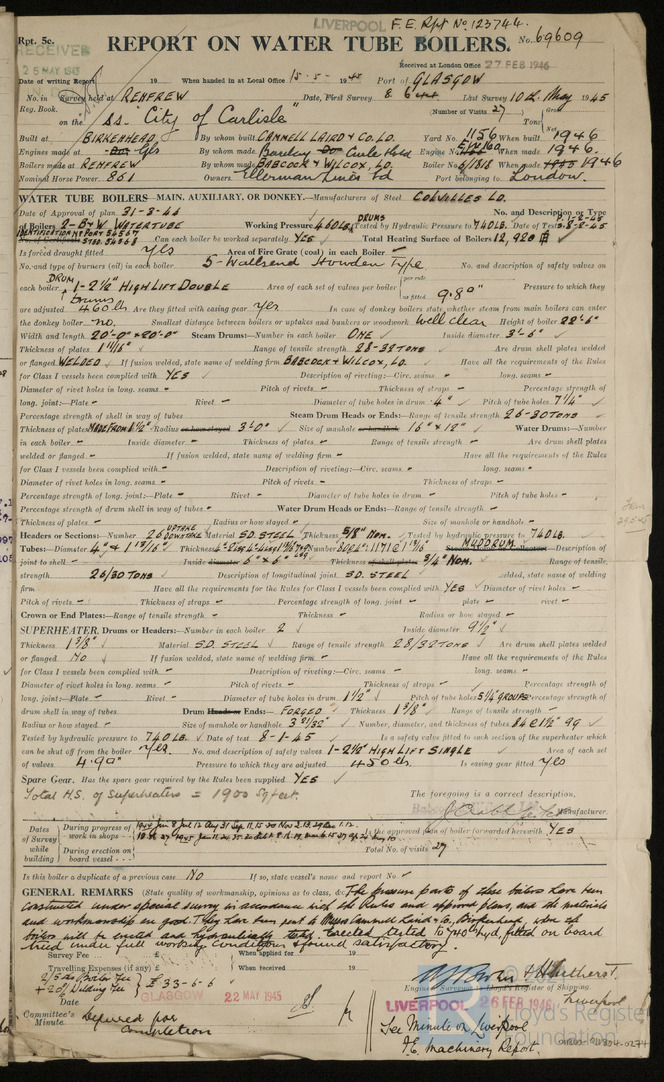 LIVERPOOL F.E. Rpt No. 123744.
Rpt. 5c. REPORT ON WATER TUBE BOILERS. No. 69609
RECEIVED
25 MAY 1945
Received at London Office 27 FEB 1946
Date of writing Report 19 When handed in at Local Office 15.5. 1945 Port of GLASGOW
No. in Survey held at RENFREW Date, First Survey 8 Last Survey 10th May 1945
Reg. Book. (Number of Visits 27)
on the SS. "City of Carlisle" Tons Gross Net
Built at BIRKENHEAD By whom built CAMMELL LAIRD & CO. LD. Yard No. 1156 When built 1946
Engines made at Gls By whom made Barclay Curle Engine No. When made 1946.
Boilers made at RENFREW By whom made BABCOCK & WILCOX, LD. Boiler No. 6/1818 When made 1946
Nominal Horse Power 861 Owners Ellerman Lines Ld Port belonging to London
WATER TUBE BOILERS—MAIN, AUXILIARY, OR DONKEY.—Manufacturers of Steel COLVILLES LD.
Date of Approval of plan 31-3-44 No. and Description or Type
of Boilers 2-B&W WATERTUBE Working Pressure 460 LBS DRUMS Tested by Hydraulic Pressure to 740 LB. Date of Test
Can each boiler be worked separately YES Total Heating Surface of Boilers 12,920
Is forced draught fitted Yes Area of Fire Grate (coal) in each Boiler -
No. and type of burners (oil) in each boiler 5 - Wallsend Howden Type. No. and description of safety valves on
each boiler DRUM 1-2½" HIGH LIFT DOUBLE Area of each set of valves per boiler per rule as fitted 9.80" Pressure to which they
are adjusted Drums 460 lbs Are they fitted with easing gear Yes In case of donkey boilers state whether steam from main boilers can enter
the donkey boiler no. Smallest distance between boilers or uptakes and bunkers or woodwork Well clear Height of boiler 22'-6"
Width and length 20'-0" × 20'-0" Steam Drums:—Number in each boiler ONE Inside diameter 3'-6"
Thickness of plates 1 11/16" Range of tensile strength 28-32 TONS Are drum shell plates welded
or flanged WELDED If fusion welded, state name of welding firm BABCOCK & WILCOX, LD. Have all the requirements of the Rules
for Class I vessels been complied with YES Description of riveting:—Circ. seams - long. seams -
Diameter of rivet holes in long. seams - Pitch of rivets - Thickness of straps - Percentage strength of
long. joint:—Plate - Rivet - Diameter of tube holes in drum 4" Pitch of tube holes 7¼"
Percentage strength of shell in way of tubes Steam Drum Heads or Ends:—Range of tensile strength 26-30 TONS
Thickness of plates MADE FROM 1½" Radius or how stayed 3'-0" Size of manhole or handhole 16" × 12" Water Drums:—Number
in each boiler - Inside diameter - Thickness of plates - Range of tensile strength - Are drum shell plates
welded or flanged - If fusion welded, state name of welding firm - Have all the requirements of the Rules
for Class I vessels been complied with - Description of riveting:—Circ. seams - long. seams -
Diameter of rivet holes in long. seams - Pitch of rivets - Thickness of straps -
Percentage strength of long. joint:—Plate - Rivet - Diameter of tube holes in drum - Pitch of tube holes -
Percentage strength of drum shell in way of tubes - Water Drum Heads or Ends:—Range of tensile strength -
Thickness of plates - Radius or how stayed - Size of manhole or handhole -
Headers or Sections:—Number 26 UPTAKE DOWNTAKE Material S.D. STEEL Thickness 5/8" NOM. Tested by hydraulic pressure to 740 LB.
Tubes:—Diameter 4" & 1 13/16" Thickness Number MUDDRUM —Description of
joint to shell - Inside 6" × 6" Thickness of shell plates 3/4" NOM. Range of tensile
strength 26/30 TONS Description of longitudinal joint S.D. STEEL welded, state name of welding
firm Have all the requirements for the Rules for Class I vessels been complied with YES Diameter of rivet holes -
Pitch of rivets - Thickness of straps - Percentage strength of long. joint - plate - rivet -
Crown or End Plates:—Range of tensile strength - Thickness - Radius or how stayed -
SUPERHEATER. Drums or Headers:—Number in each boiler 2 Inside diameter 9½"
Thickness 1 3/8" Material S.D. STEEL Range of tensile strength 28/32 TONS Are drum shell plates welded
or flanged NO If fusion welded, state name of welding firm - Have all the requirements of the Rules
for Class I vessels been complied with - Description of riveting:—Circ. seams - long. seams -
Diameter of rivet holes in long. seams - Pitch of rivets - Thickness of straps - Percentage strength of
long. joint:—Plate - Rivet - Diameter of tube holes in drum 1½" Pitch of tube holes 5¼" GROUPS Percentage strength of
drum shell in way of tubes - Drum Heads or Ends:— FORGED Thickness 1 3/8" Range of tensile strength -
Radius or how stayed - Size of manhole or handhole 3 31/32" Number, diameter, and thickness of tubes 84 @ 1½" 9g
Tested by hydraulic pressure to 740 LB Date of test 8-1-45 Is a safety valve fitted to each section of the superheater which
can be shut off from the boiler Yes. No. and description of safety valves 1-2½" HIGH LIFT SINGLE Area of each set
of valves 4.90" Pressure to which they are adjusted 450 lbs. Is easing gear fitted Yes
Spare Gear. Has the spare gear required by the Rules been supplied YES
Total H.S. of Superheaters = 1900 Sq feet. The foregoing is a correct description,
Manufacturer.
Dates of Survey while building During progress of work in shops - - -
During erection on board vessel - - -
Is the approved plan of boiler forwarded herewith YES
Total No. of visits 27
Is this boiler a duplicate of a previous case NO If so, state vessel's name and report No. -
GENERAL REMARKS (State quality of workmanship, opinions as to class, &c. The pressure parts of these boilers have been
constructed under special survey in accordance with the Rules and approved plans, and the materials
and workmanship are good. They have been sent to Messrs Cammell Laird & Co, Birkenhead, where the
boilers will be erected and hydraulically tested. Erected, tested to 740 lbs hyd, fitted on board
tried under full working conditions & found satisfactory.
Survey Fee £ When applied for 19
Travelling Expenses (if any) £ When received 19
2/5 ds Boiler Fee
+ 2/5 Welding Fee £ 33-6-6
Engineer Surveyor to Lloyd's Register of Shipping.
Liverpool
Date GLASGOW 22 MAY 1945 LIVERPOOL 26 FEB 1946
Committee's Minute. Deferred for completion
See Minute on Liverpool
F.E. Machinery Report.
Lloyd's Register
Foundation